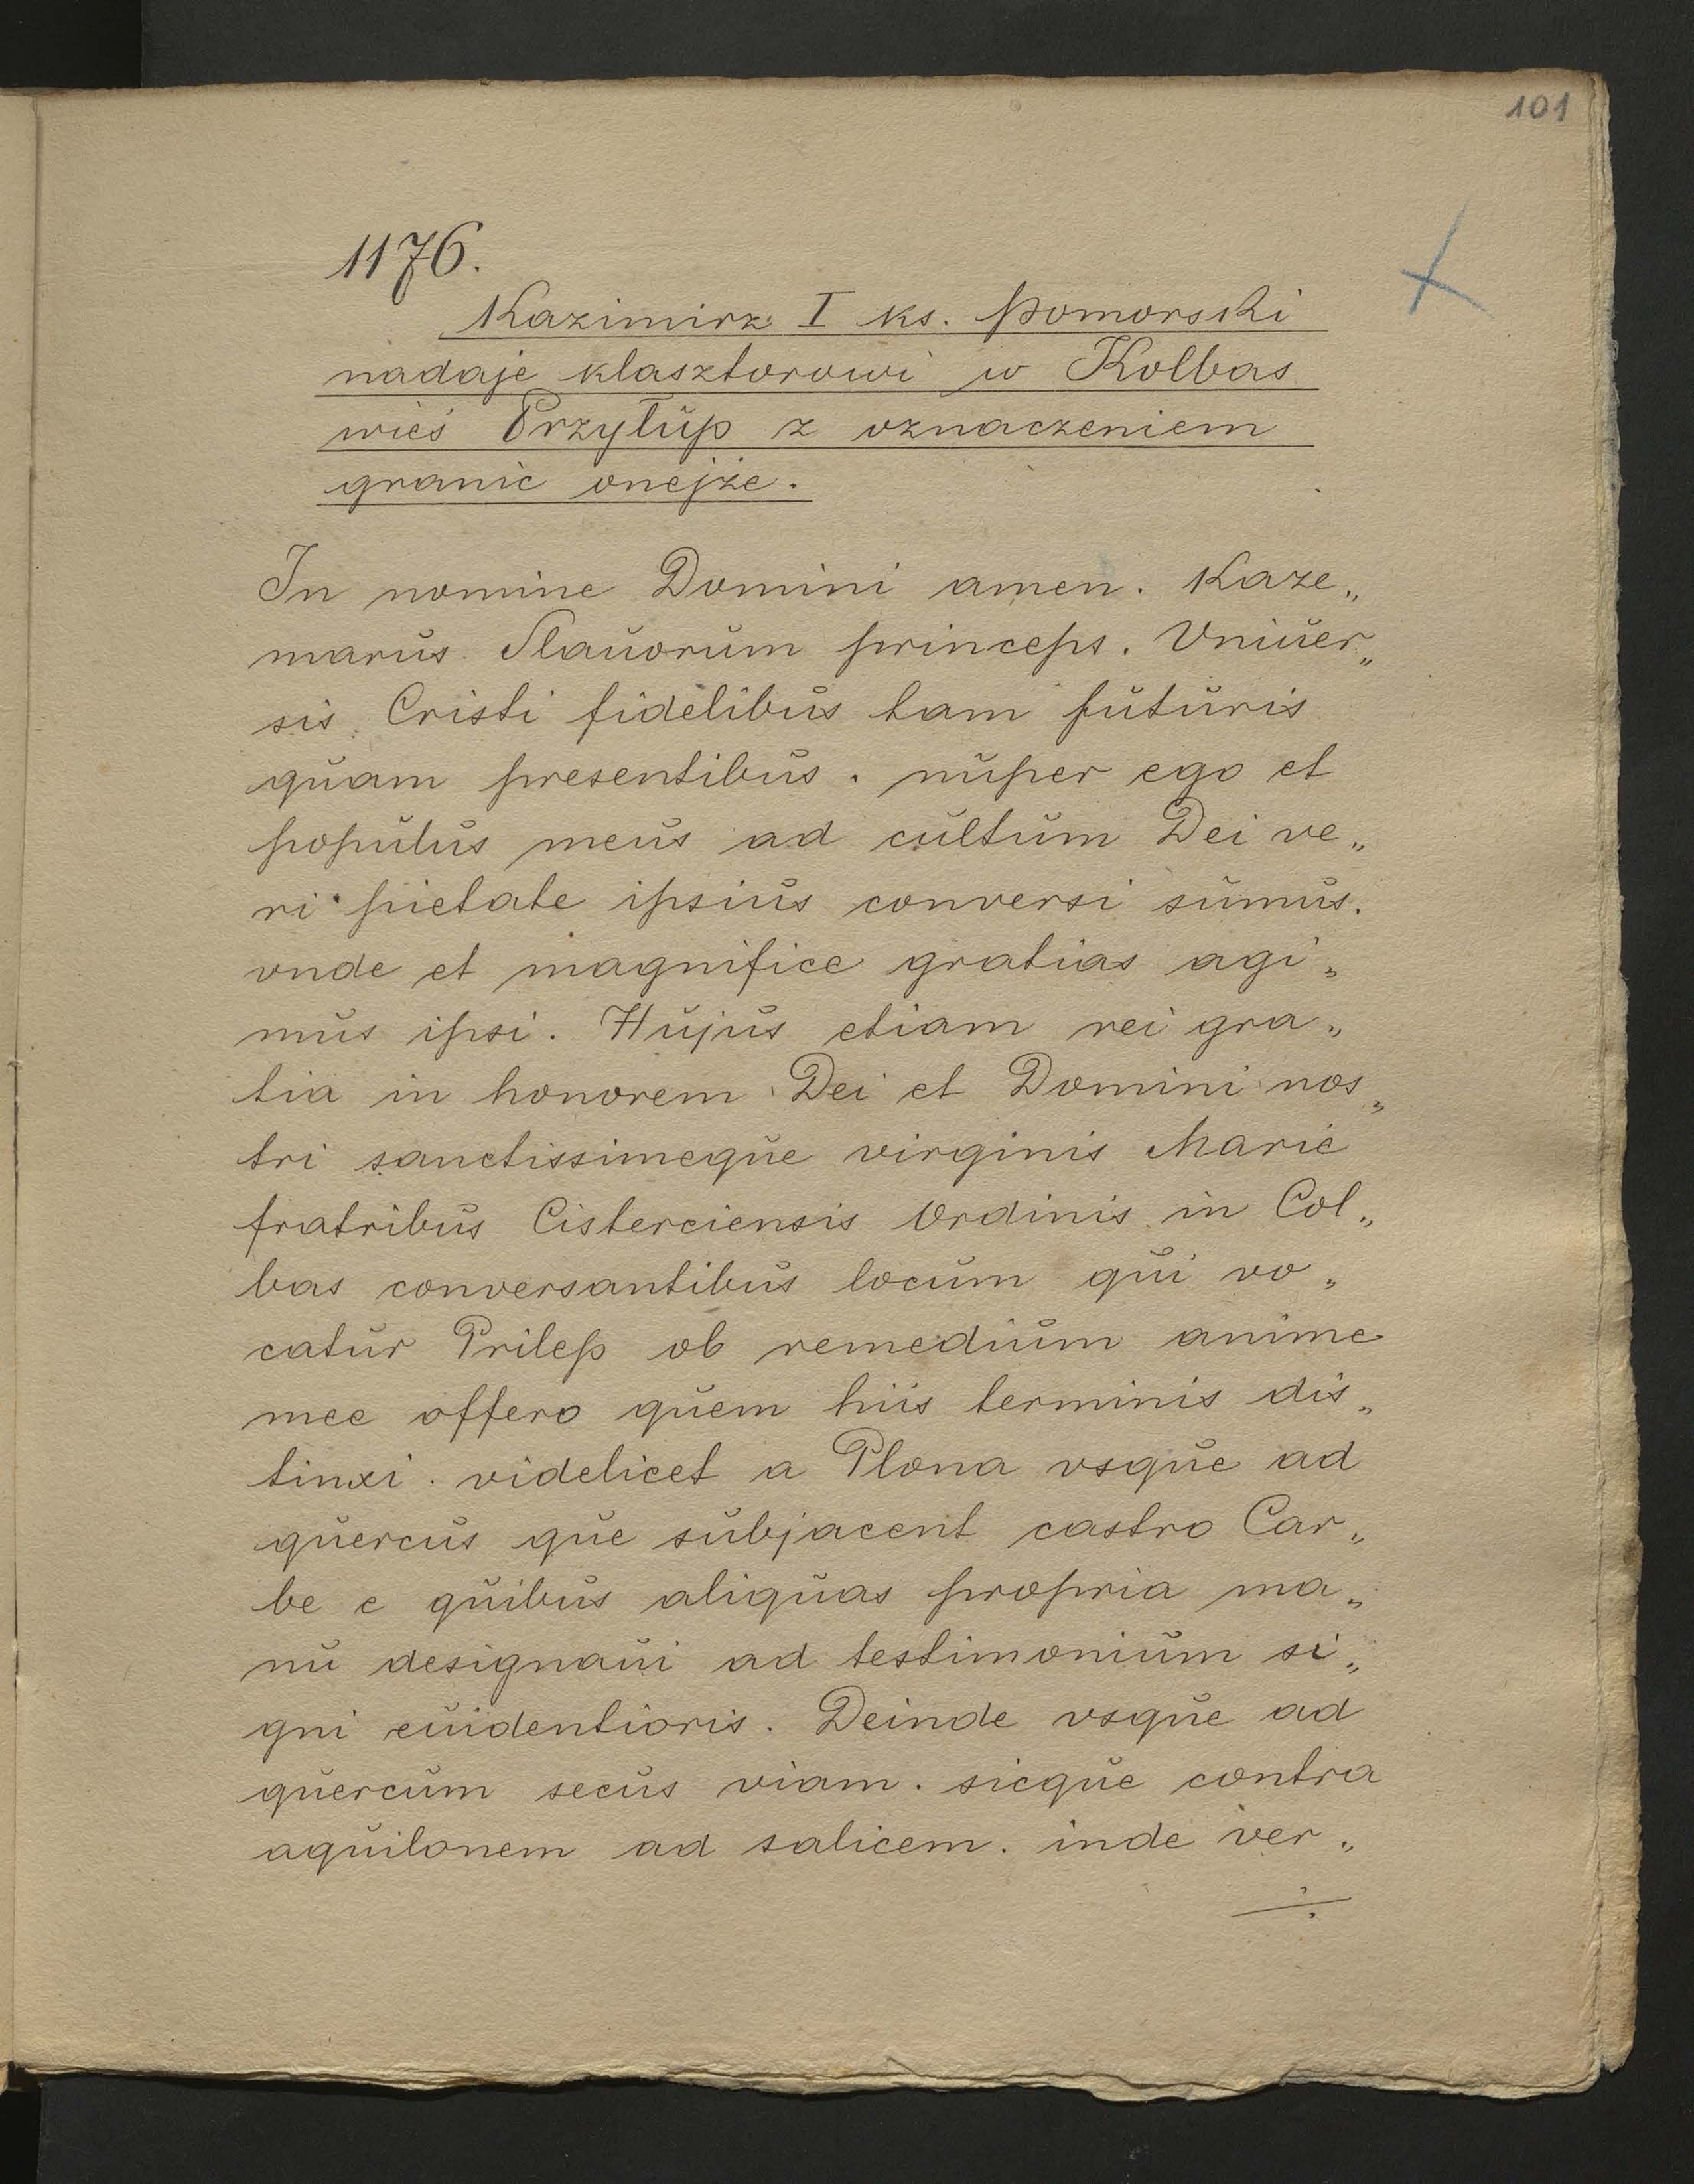 101
1176.
Kazimirz I ks. Pomorski
nadaje klasztorowi w Kolbas
wieś Przyłup z oznaczeniem
granic onejże.
In nomine Domini amen. Kaze„
marus Slauorum princeps. Vniuer„
sis Cristi fidelibus tam futuris
quam presentibus. nuper ego et
populus meus ad cultum Dei ve„
ri pietate ipsius conversi sumus.
vnde et magnifice gratias agi„
mus ipsi. Hujus etiam rei gra„
tia in honorem Dei et Domini nos„
tri sanctissimeque virginis Marie
fratribus Cisterciensis Ordinis in Col„
bas conversantibus locum qui vo„
catur Prilep ob remedium anime
mee offero quem hiis terminis dis„
tinxi. videlicet a Plona vsque ad
quercus que subjacent castro Car„
be e quibus aliquas propria ma„
nu designaui ad testimonium si„
gni euidentioris. Deinde vsque ad
quercum secus viam. sicque contra
aquilonem ad salicem. inde ver„